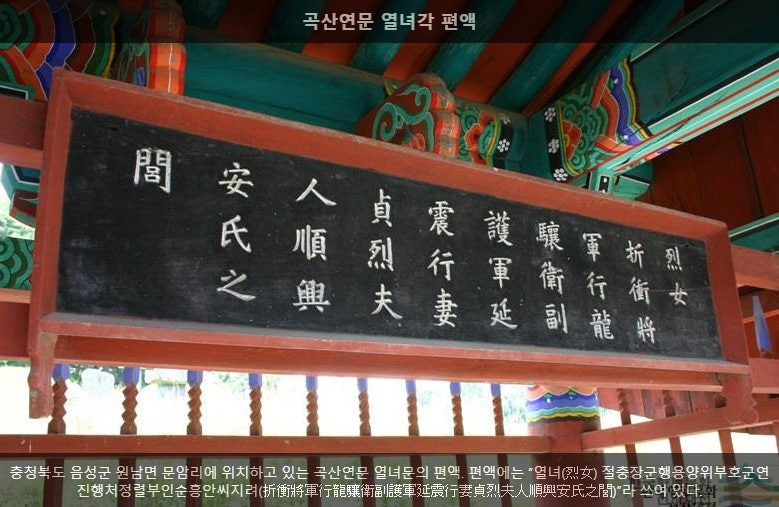 곡산연문 열녀각 편액
烈女
折衝將
軍行龍
驤衛副
護軍延
震行妻
貞烈夫
人順興
安氏之
閭
충청북도 음성군 원남면 문암리에 위치하고 있는 곡산연문 열녀문의 편액. 편액에는 “열녀(烈女) 절충장군행용양위부호군연
진행처정렬부인순흥안씨지려(折衝將軍行龍驤衛副護軍延震行妻貞烈夫人順興安氏之閭)”라 쓰여 있다.